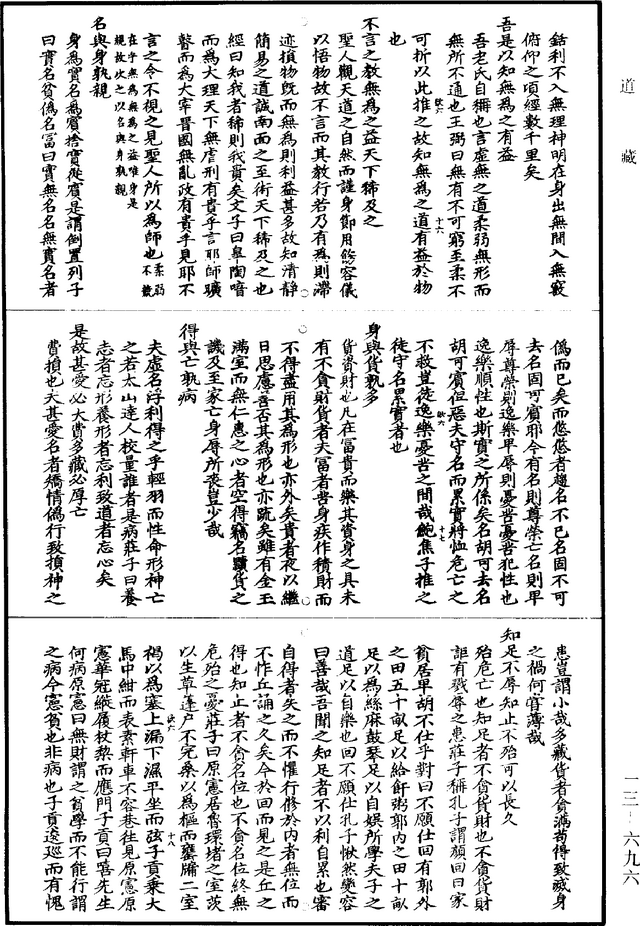 道藏
銛利不入無理神明在身出無間入無竅
俯仰之頃經數千里矣
吾是以知無為之有益
吾老氏自稱也言虛無之道柔弱無形而
無所不通也王弼曰無有不可窮至柔不
可折以此推之故知無為之道有益於物
也
不言之教無為之益天下稀及之
聖人觀天道之自然而謹身節用飭容儀
以悟物故不言而其教行若乃有為則滯
迹損物旣而無為則利益甚多故知清靜
簡易之道誠南面之至術天下稀及之也
經曰知我者稀則我貴矣文子曰臯陶喑
而為大理天下無虐刑有貴乎言耶師曠
瞽而為太宰晉國無亂政有貴乎見耶不
言之令不視之見聖人所以為師也
名與身孰親
身為實名為賓捨實從賓是謂倒置列子
曰實名貧偽名富曰實無名名無實名者
偽而已矣而悠悠者趨名不已名固不可
去名固可賓耶今有名則尊榮亡名則卑
辱尊榮則逸樂卑辱則憂苦憂苦犯性也
逸樂順性也斯實之所係矣名胡可去名
胡可賓但惡夫守名而累實將恤危亡之
不救豈徒逸樂憂苦之間哉鮑焦子推之
徒守名累實者也
身與貨孰多
貨資財也凡在富貴而樂其資身之具未
有不貪財貨者夫富者苦身疾作積財而
不得盡用其為形也亦外矣貴者夜以繼
日思慮善否其為形也亦疏矣雖有金玉
滿室而無仁惠之心者空得竊名
譏及至家亡身辱所喪豈少哉
得與亡孰病
夫虛名浮利得之乎輕羽而性命形神亡
之若太山達人校量誰者是病莊子曰養
志者忘形養形者忘利致道者忘心矣
是故甚愛必大費多藏必厚亡
費損也夫甚愛名者矯情偽行致損神之
患豈謂小哉多藏貨者貪滿苟得致戚身
之禍何嘗薄哉
知足不辱知止不殆可以長久
殆危亡也知足者不貪貨財也不貪貨財
詎有戮辱之患莊子稱孔子謂顏回曰家
貧居卑胡不仕乎對曰不願仕回有郭外
之田五十畝足以給飦粥郭內之田十畝
足以為絲麻鼓琴足以自娛所學夫子之
道足以自樂也回不願仕孔子愀然變容
曰善哉吾聞之知足者不以利自累也審
自得者失之而不懼行修於內者無位而
不怍丘誦之久矣今於回而見之是丘之
得也知止者不貪名位也不貪名位終無
危殆之憂莊子曰原憲居魯環堵之室茨
以生草蓬戶不完桑以為樞而甕牖二室
褐以為塞上漏下濕平坐而弦子貢乘大
馬中紺而表素軒車不容巷往見原憲原
憲華冠縰履杖藜而應門子貢曰嘻先生
何病原憲曰無財謂之貧學而不能行謂
之病今憲貧也非病也子貢逡巡而有愧
一三-六九六